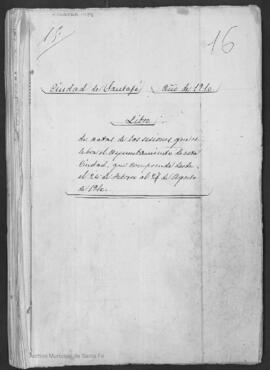 15.
16
Ciudad de Santafé Año de 1910
Libro
de actas de las sesiones que ce-
lebra el Ayuntamiento de esta
Ciudad, que comprende desde
el 24 de Febrero al 29 de Agosto
de 1910.
Archivo Municipal de Santa Fe